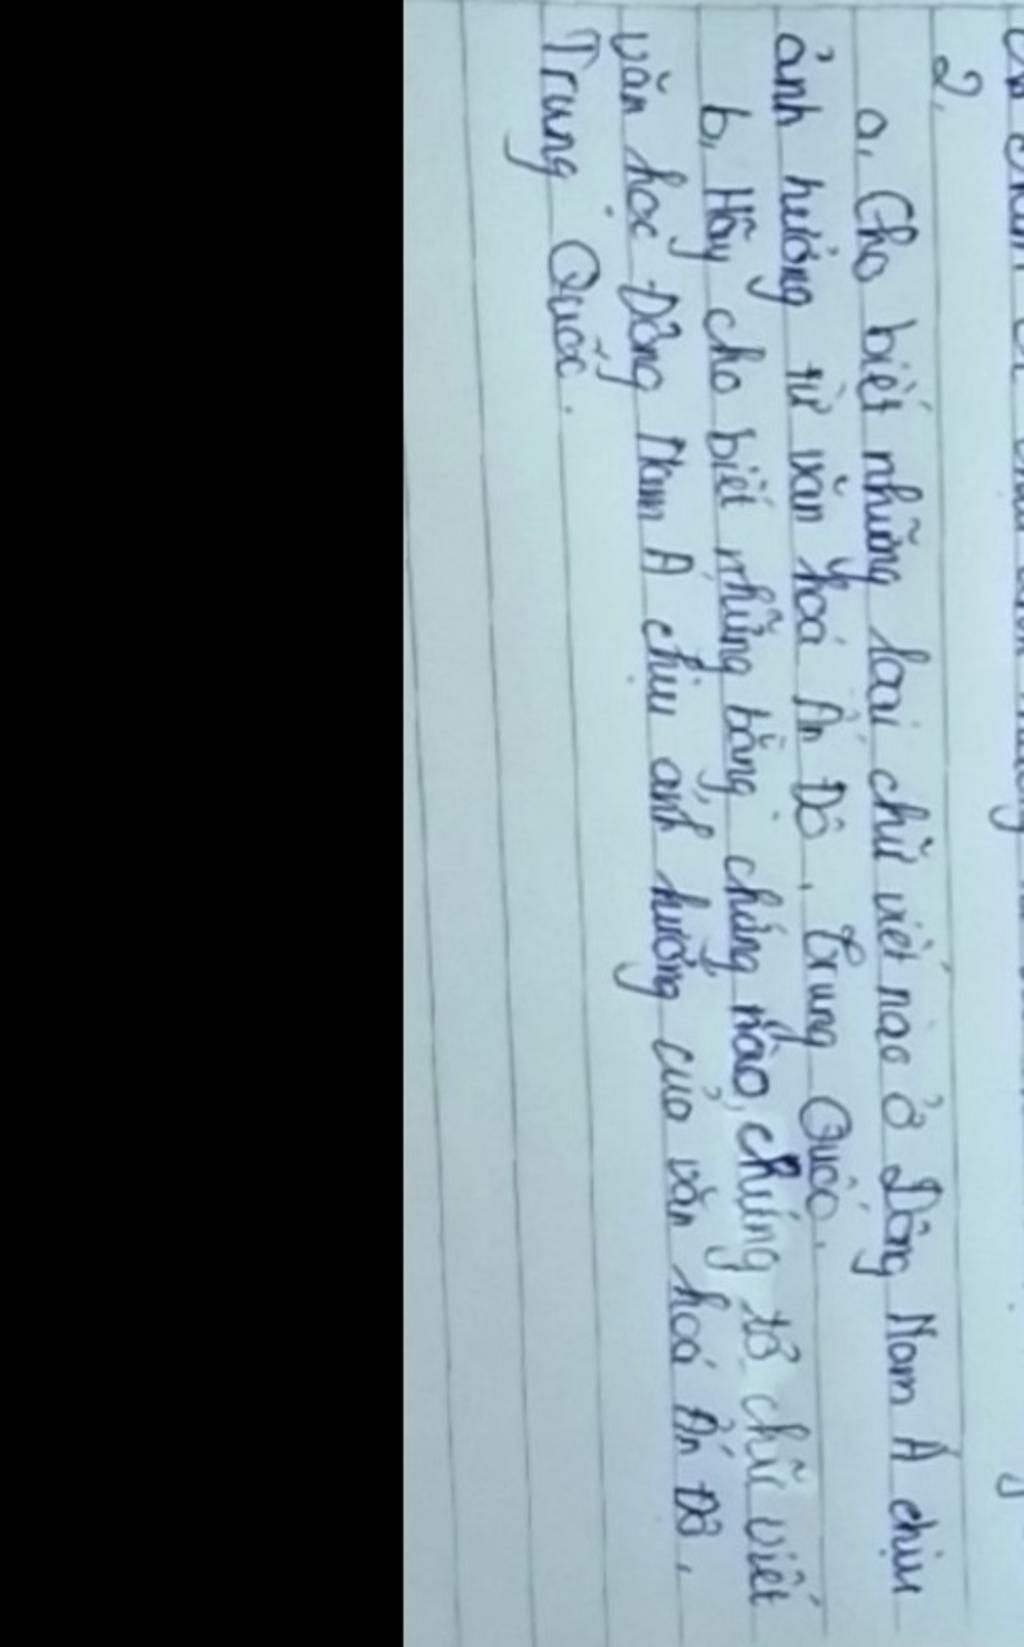 2,
a, Cho biết những loại chữ viết nào ở Đông Nam Á chịu
ảnh hưởng từ văn hoá Ấn Độ, Trung Quốc.
b, Hãy cho biết những bằng chứng nào, chứng tỏ chữ viết
văn học Đông Nam Á chịu ảnh hưởng của văn hoá Ấn Độ,
Trung Quốc.